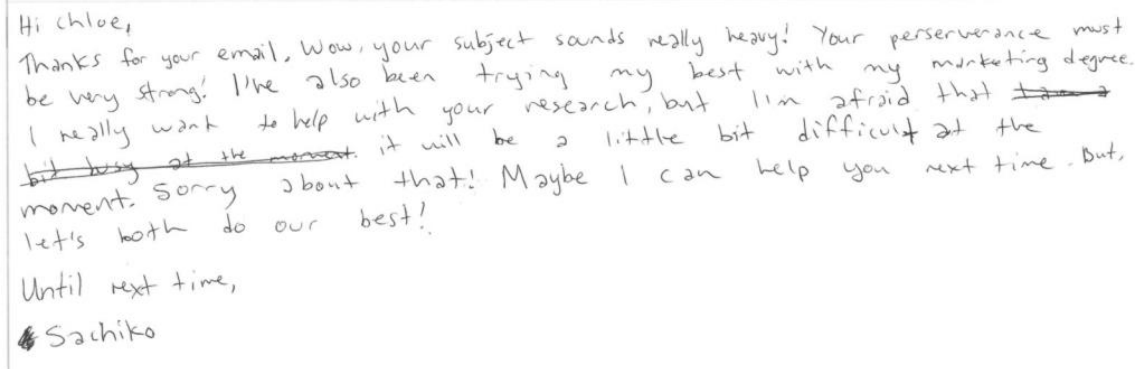 Hi Chloe,
Thanks for your email. Wow, your subject sounds really heavy! Your perserverance must
be very strong! I've also been trying my best with my marketing degree.
I really want to help with your research, but I'm afraid that I am a
bit busy at the moment. it will be a little bit difficult at the
moment. Sorry about that! Maybe I can help you next time. But,
let's both do our best!
Until next time,
Sachiko